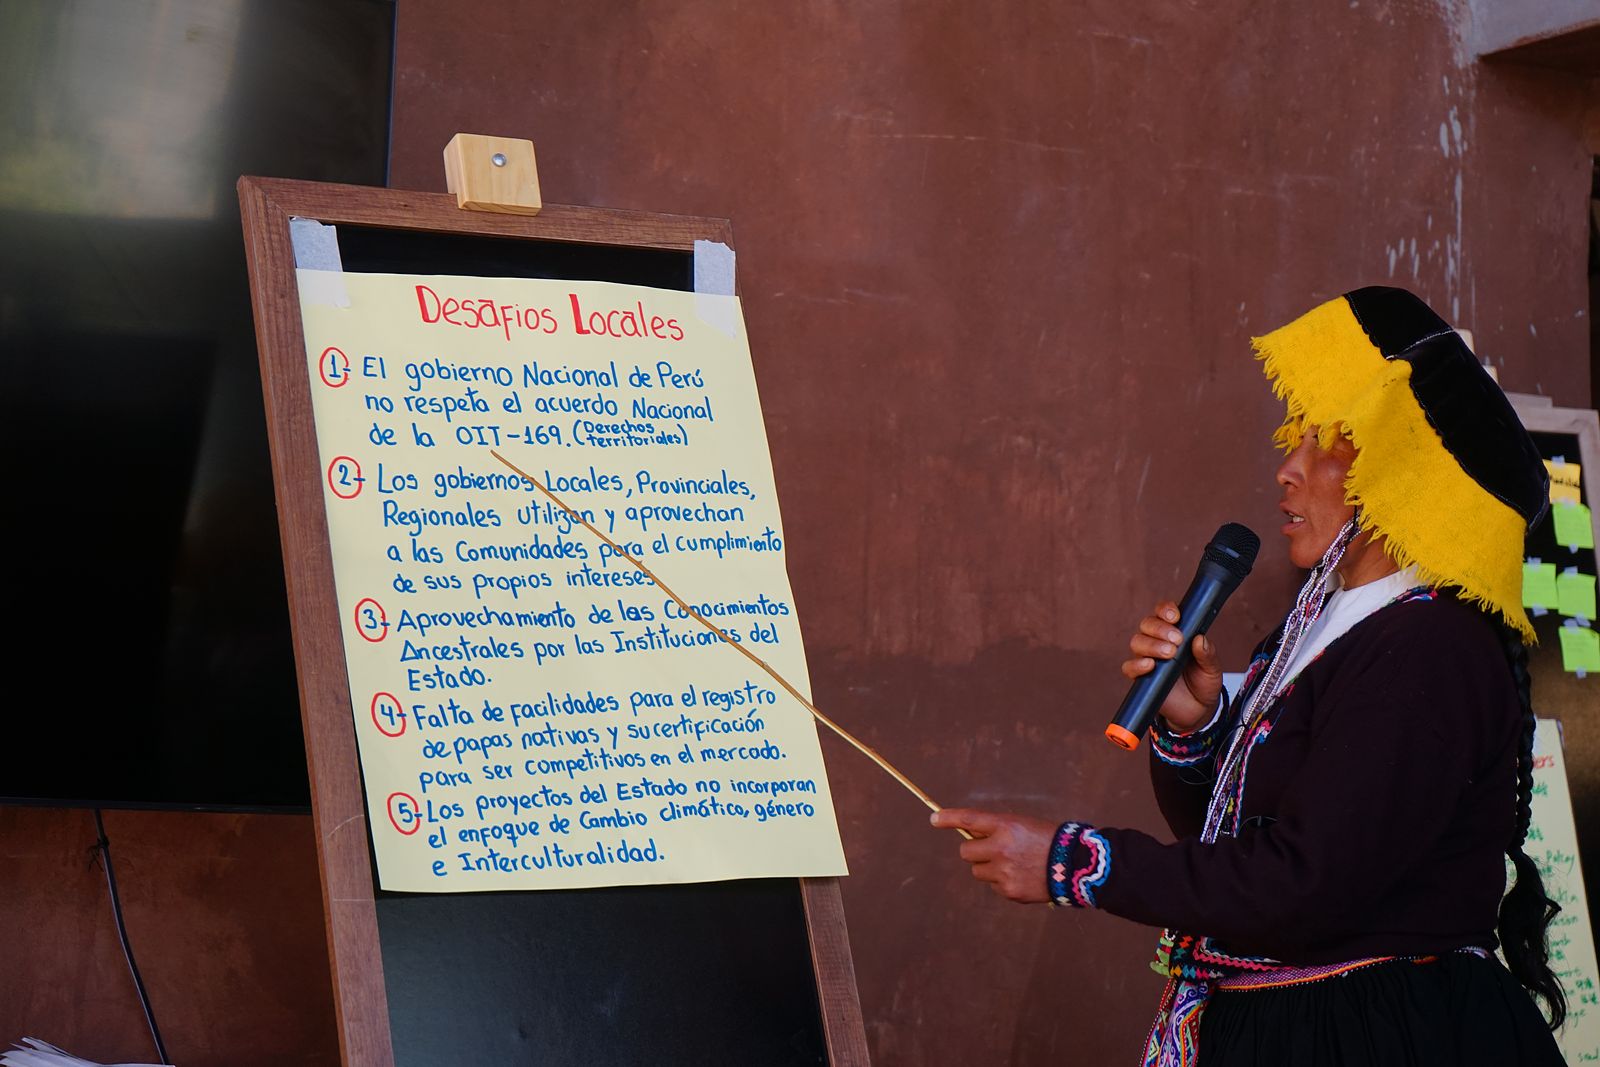 Desafios Locales
1- El gobierno Nacional de Perú
no respeta el acuerdo Nacional
de la OIT-169. (Derechos territoriales)
2- Los gobiernos Locales, Provinciales,
Regionales utilizan y aprovechan
a las Comunidades para el cumplimiento
de sus propios intereses
3- Aprovechamiento de las Conocimientos
Ancestrales por las Instituciones del
Estado.
4- Falta de facilidades para el registro
de papas nativas y su certificación
para ser competitivos en el mercado.
5- Los proyectos del Estado no incorporan
el enfoque de Cambio climático, género
e Interculturalidad.